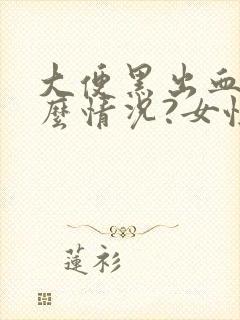 大便黑出血
麼情況?女性
蓮衫